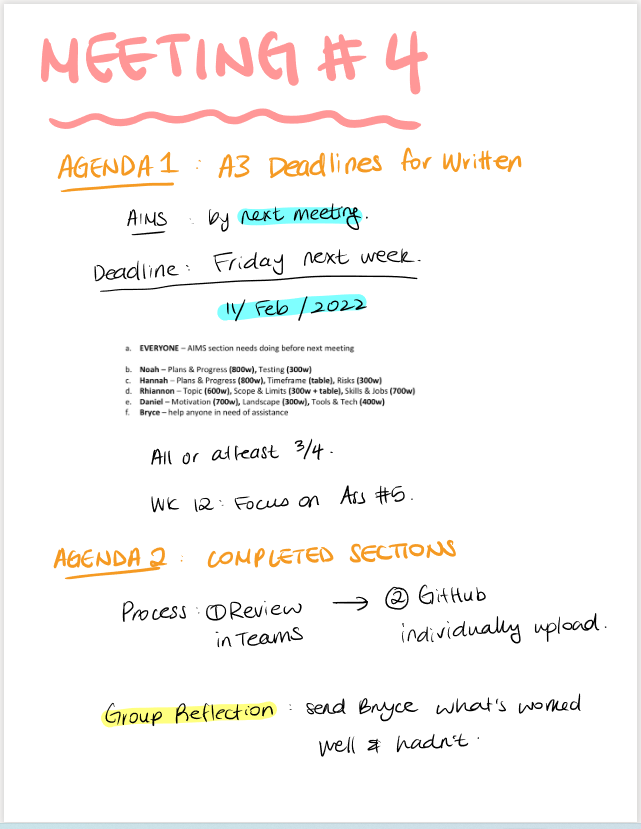 MEETING # 4
AGENDA 1 : A3 Deadlines for Written
AIMS : by next meeting.
Deadline : Friday next week.
11/ Feb / 2022
a. EVERYONE – AIMS section needs doing before next meeting
b. Noah – Plans & Progress (800w), Testing (300w)
c. Hannah – Plans & Progress (800w), Timeframe (table), Risks (300w)
d. Rhiannon – Topic (600w), Scope & Limits (300w + table), Skills & Jobs (700w)
e. Daniel – Motivation (700w), Landscape (300w), Tools & Tech (400w)
f. Bryce – help anyone in need of assistance
All or atleast 3/4.
WK 12 : Focus on Ass #5.
AGENDA 2 : COMPLETED SECTIONS
Process : ① Review → ② GitHub
in Teams individually upload.
Group Reflection : send Bryce what's worked
well & hadn't.